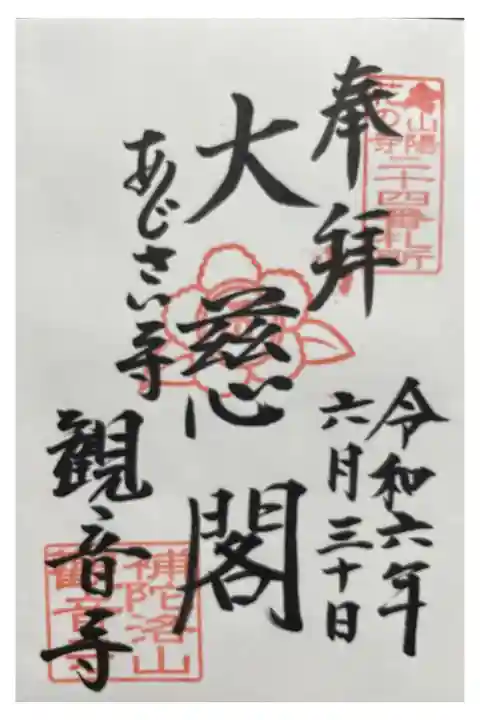 奉拝
山陽
花の寺
二十四番札所
令和六年
六月三十日
大慈閣
あじさい寺
観音寺
補陀洛山
観音寺